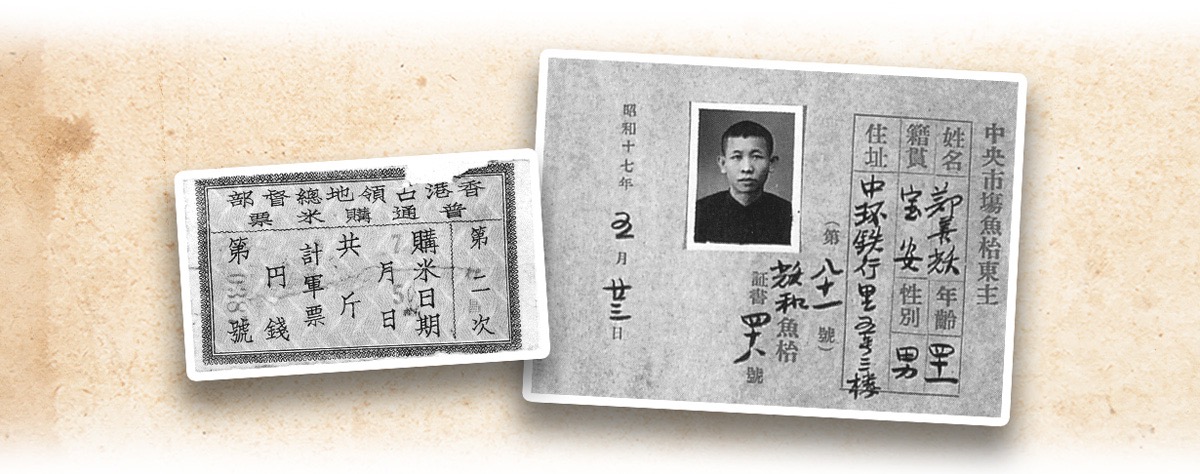 香港占領地總督部
普通購米票
第二次
購米日期
7月5日
共斤
計軍票
円錢
第038號
中央市塲魚枱東主
姓名 鄭 年齡
籍貫 宝安 性別 男
住址 中环鉄行里五号三楼
（第八十一號）
和魚枱
証書 號
昭和十七年五月廿三日